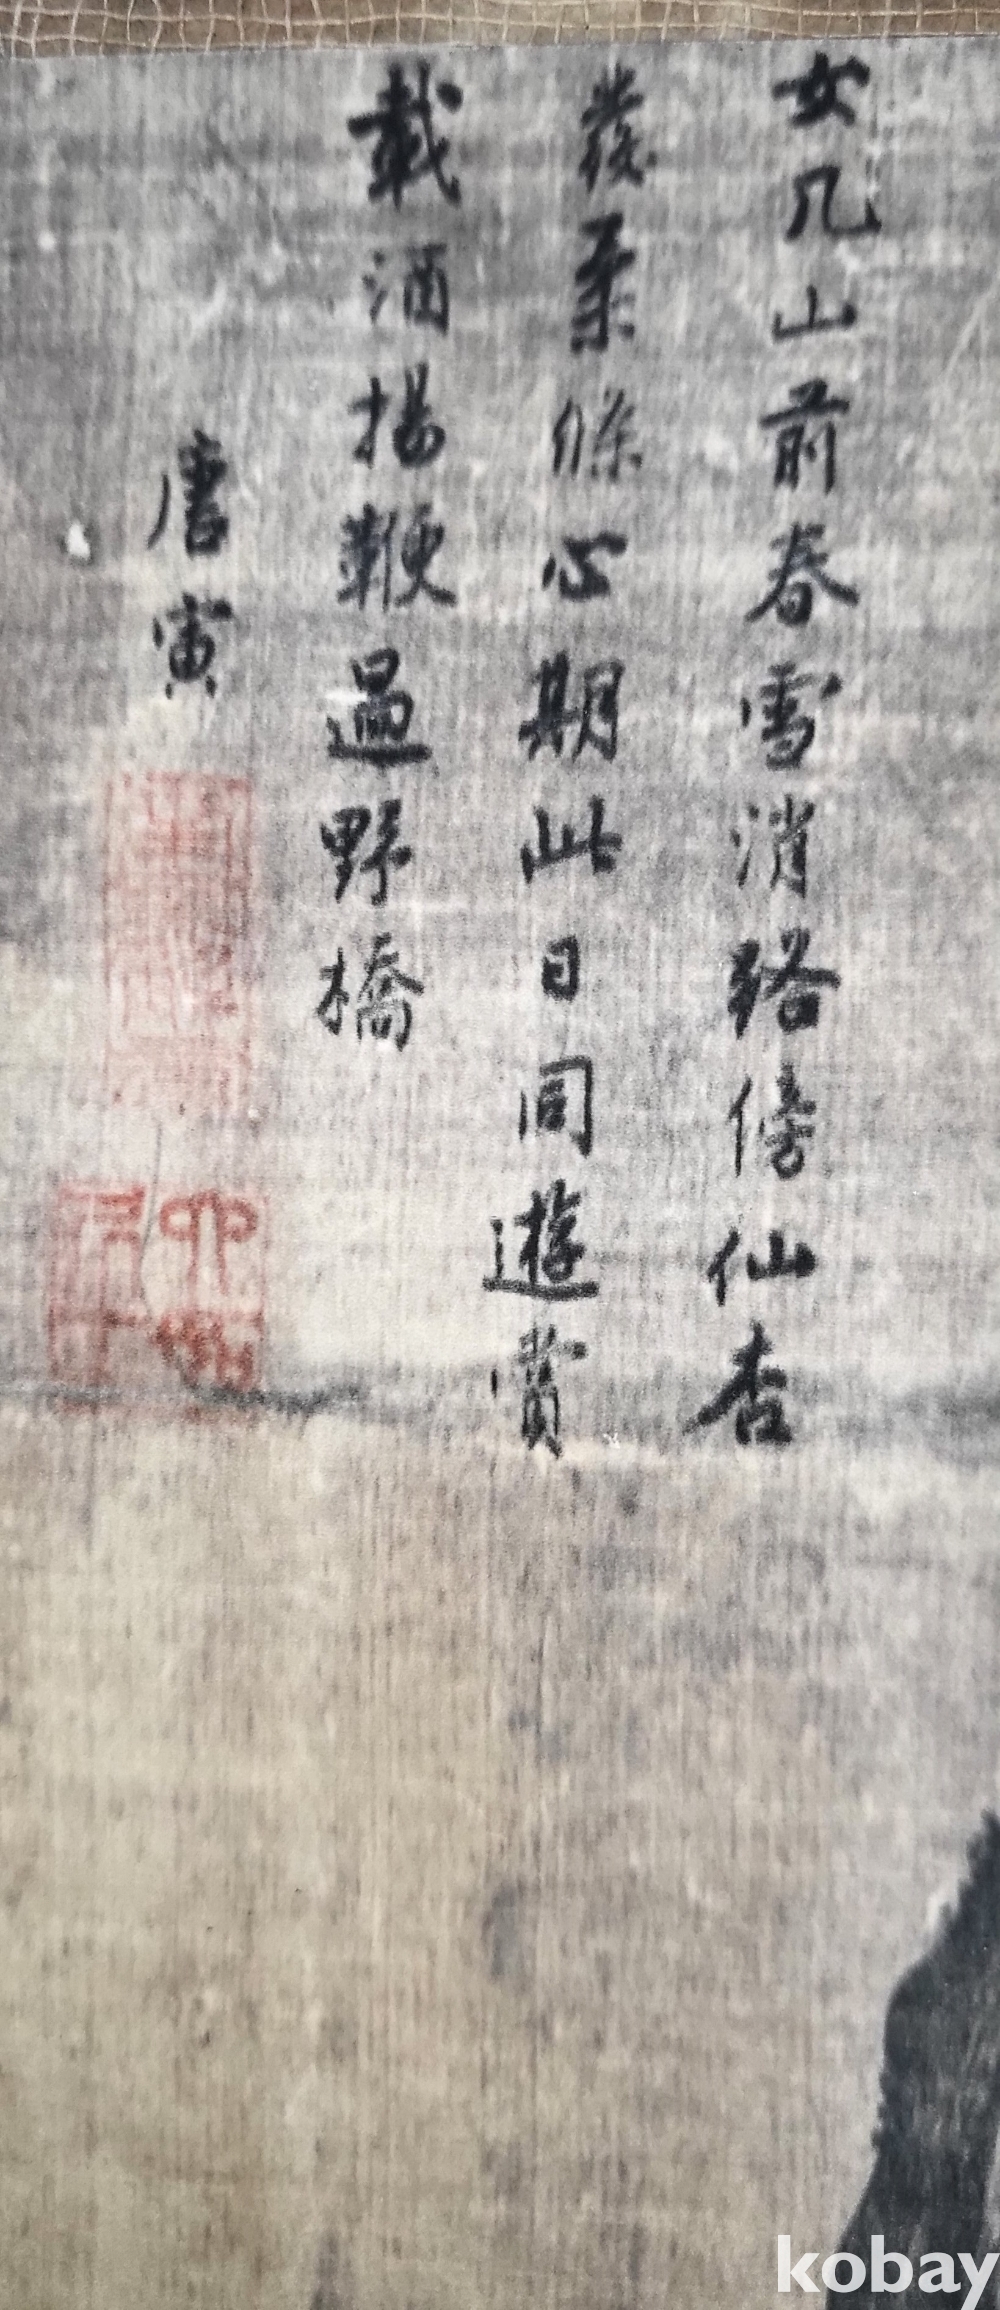 女几山前春雪消路傍仙杏
發柔條心期此日同遊賞
載酒揚鞭過野橋
唐寅
kobay